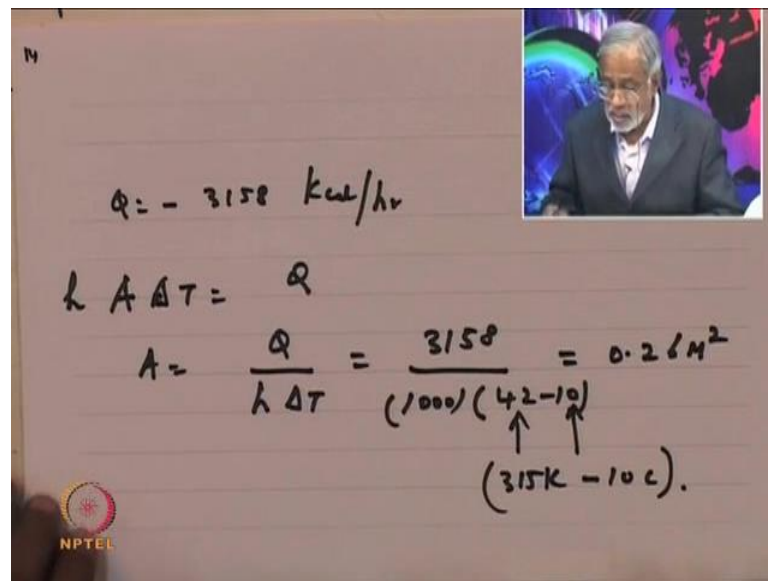 14
Q = - 3158 Kcal/hr
h A ΔT = Q
A = Q / h ΔT = 3158 / (1000) (42-10) = 0.26 M²
(315K - 10 C).
NPTEL